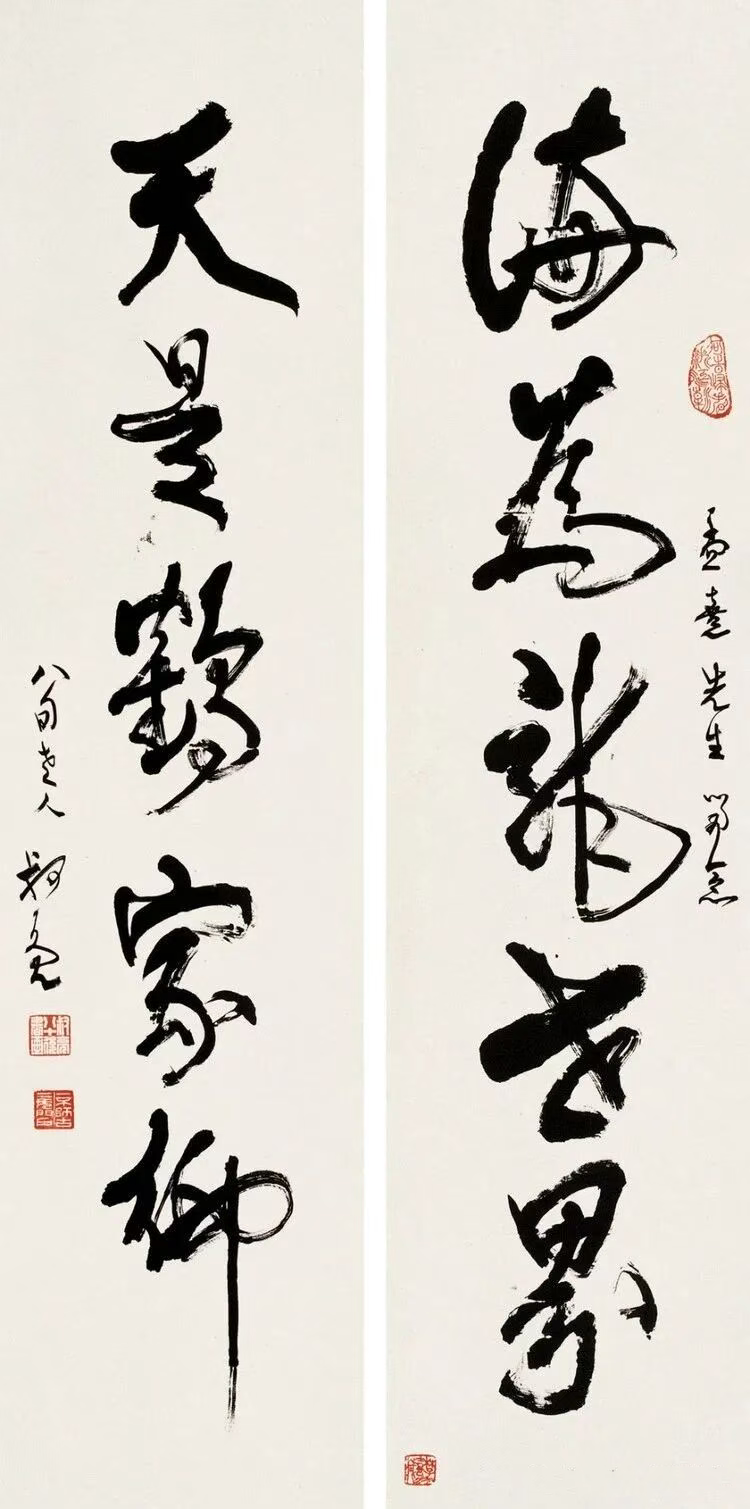 海為龍世界
孟熹先生留念
天是鶴家鄉
八旬老人